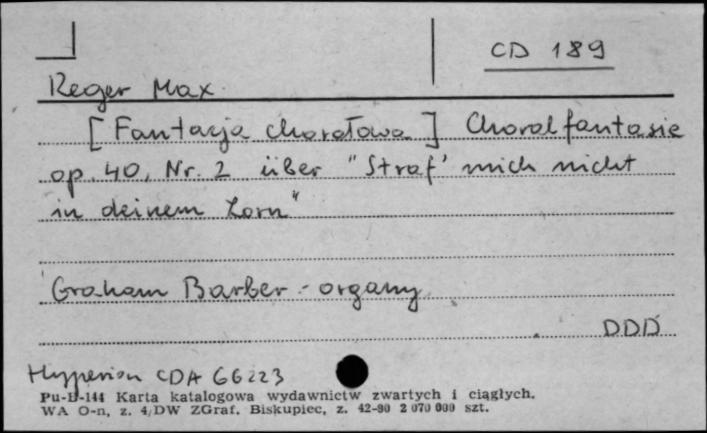 CD 189
Reger Max
[Fantazja chorałowa] Choralfantasie
op. 40, Nr. 2 über "Straf' mich nicht
in deinem Zorn"
Graham Barber - organy
DDD
Hyperion CDA 66223
Pu-B-144 Karta katalogowa wydawnictw zwartych i ciągłych.
WA O-n, z. 4/DW ZGraf. Biskupiec, z. 42-80 2 070 000 szt.